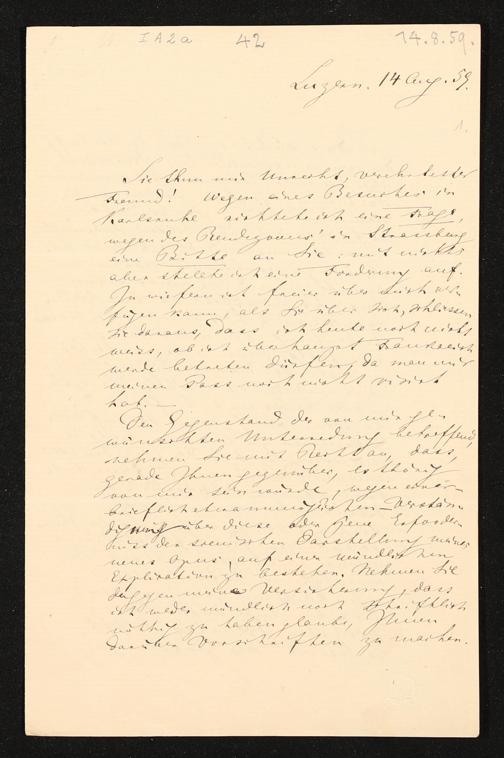 I A 2 a 42 14.8.59.
Luzern. 14 Aug. 59.
1.
Sie thun mir Unrecht, verehrtester
Freund! Wegen eines Besuches in
Karlsruhe richtete ich eine Frage,
wegen des Rendezvous' in Strassburg
eine Bitte an Sie: mit nichts
aber stellte ich eine Fordrung auf.
In wiefern ich freier über mich ver-
fügen kann, als Sie über sich, schliessen
Sie daraus, dass ich heute noch nicht
weiss, ob ich überhaupt Frankreich
werde betreten dürfen, da man mir
meinen Pass noch nicht visirt
hat. —
Den Gegenstand der von mir ge-
wünschten Unterredung betreffend,
nehmen Sie mit Recht an, dass,
gerade Ihnen gegenüber, es thörig
von mir sein würde, wegen einer
brieflich etwa unmöglichen Verstän-
digung über diese oder jene Erforder-
niss der scenischen Darstellung meines
neuen opus' auf einer mündlichen
Explication zu bestehen. Nehmen Sie
dagegen meine Versicherung, dass
ich weder mündlich noch schriftlich
nöthig zu haben glaube, Ihnen
darüber Vorschriften zu machen.